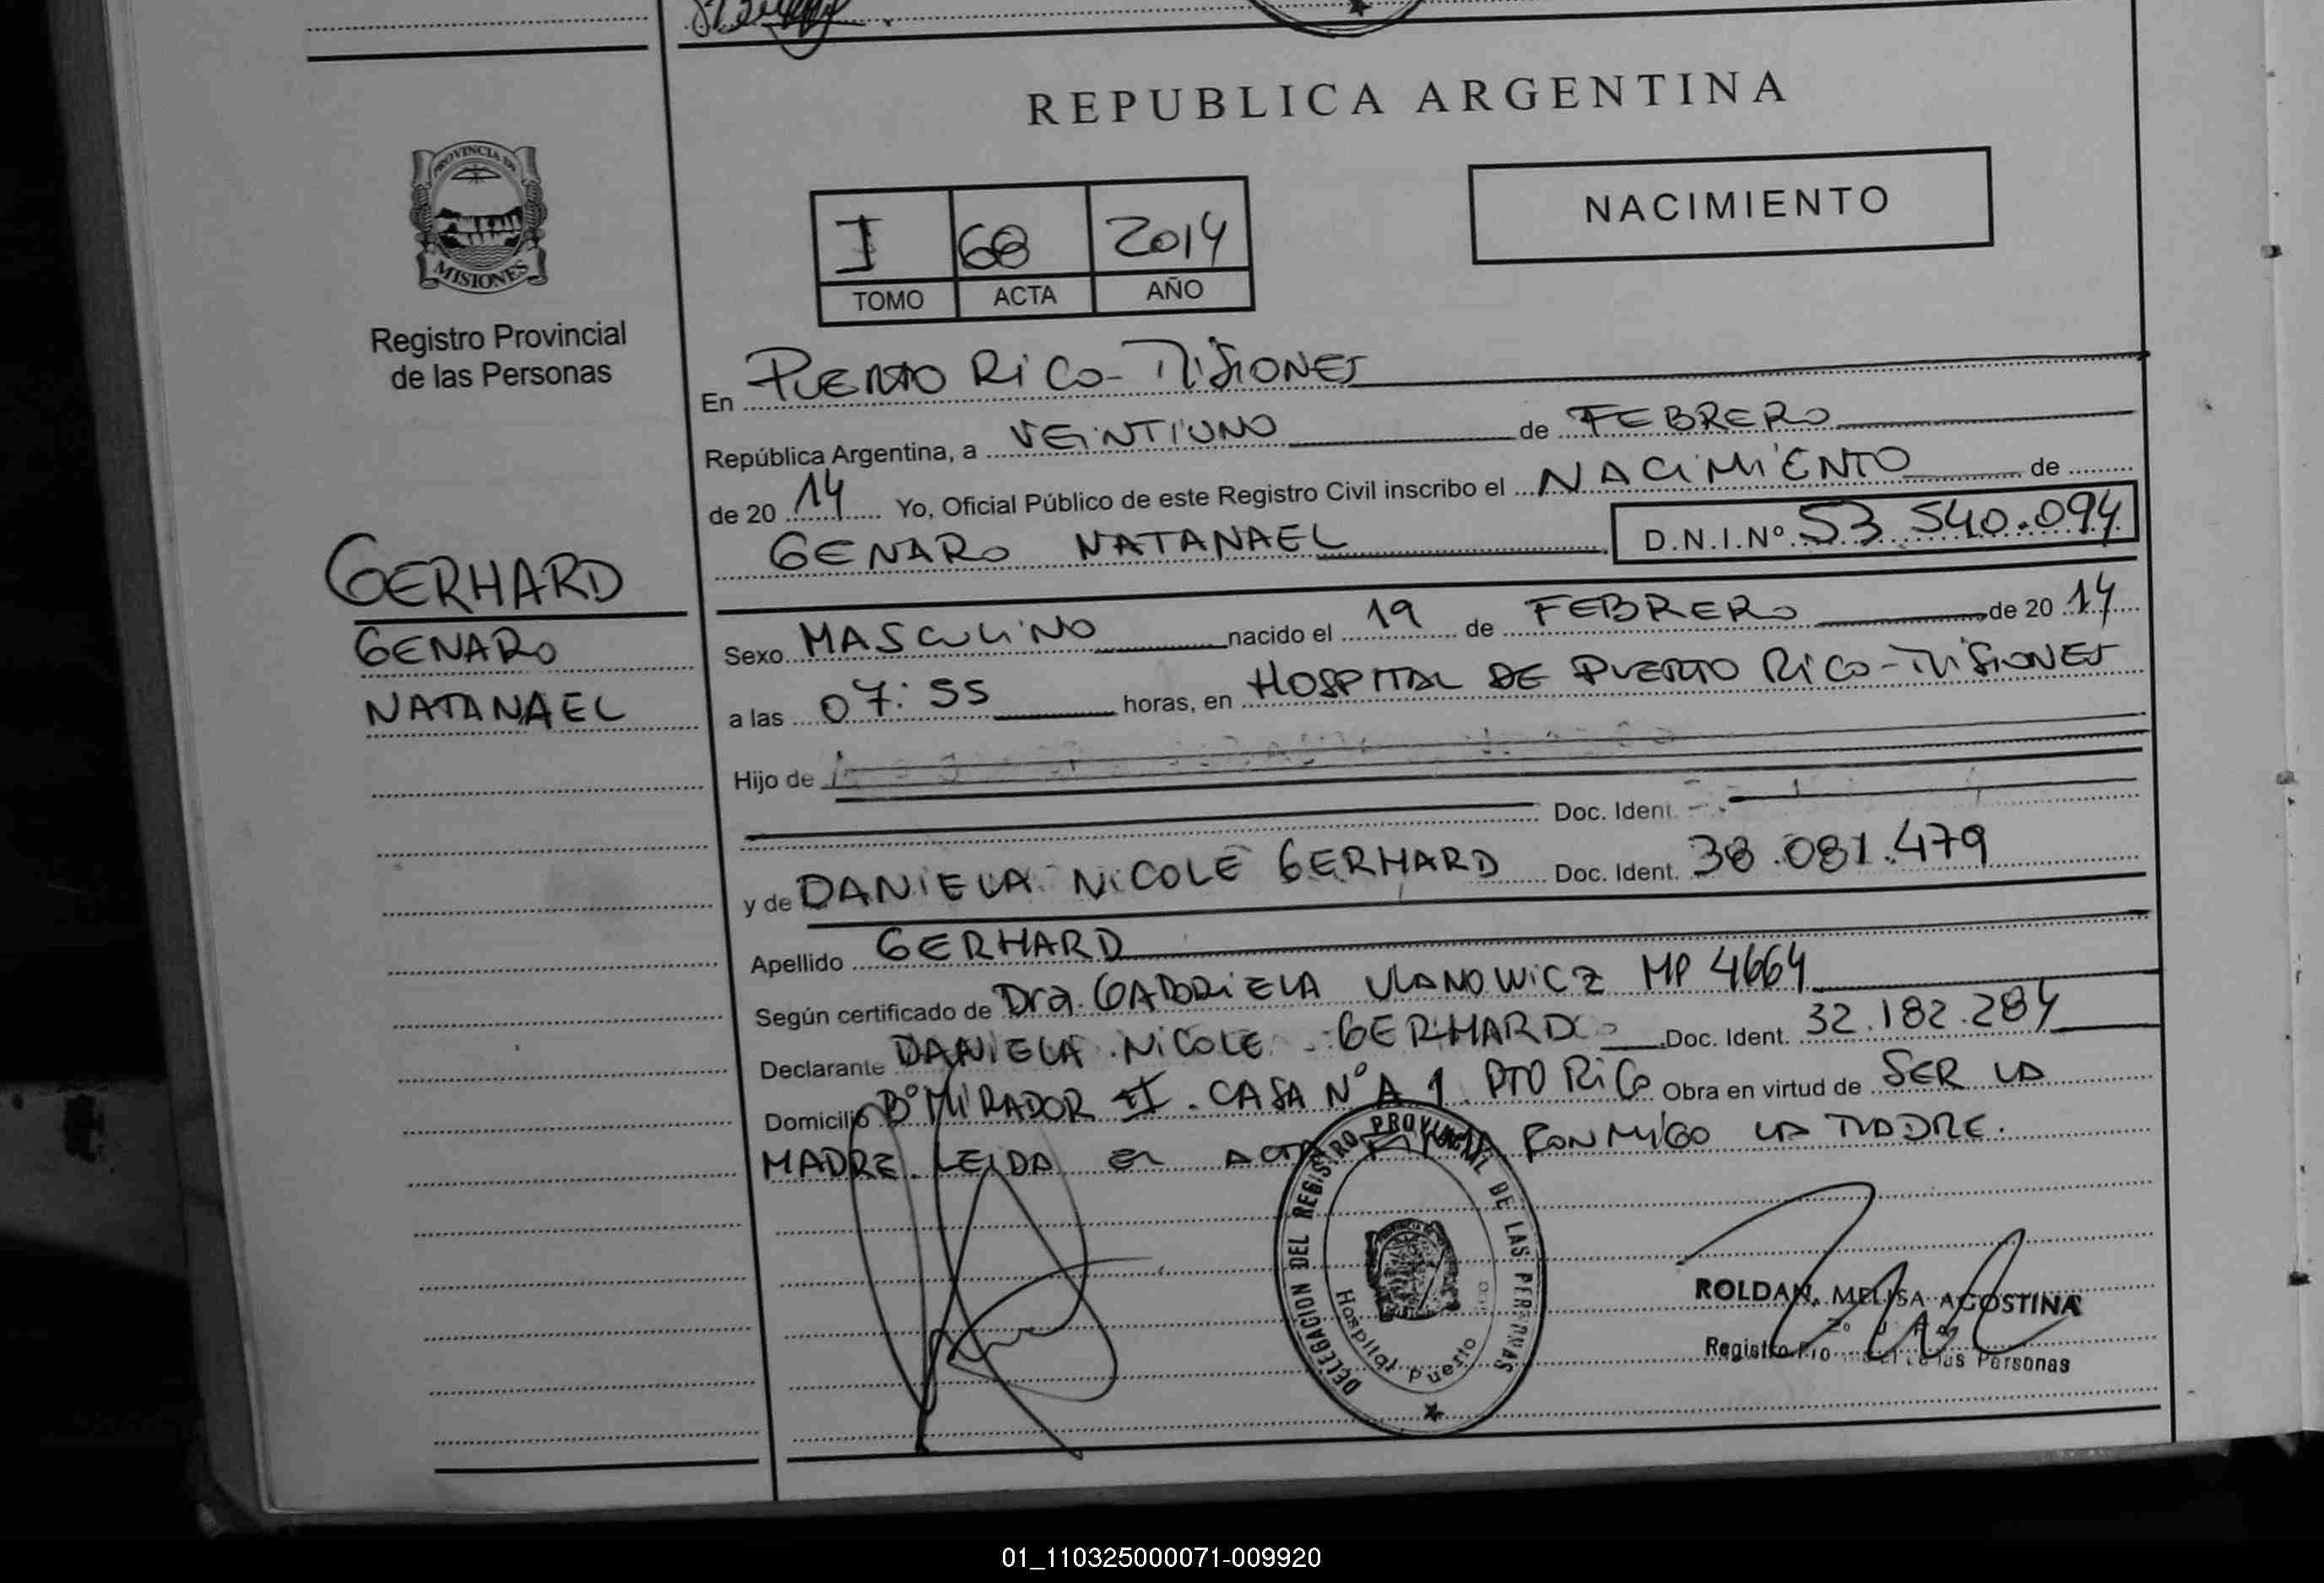 REPUBLICA ARGENTINA
PROVINCIA DE
MISIONES
Registro Provincial
de las Personas
NACIMIENTO
I 68 2014
TOMO ACTA AÑO
GERHARD
GENARO
NATANAEL
En PUERTO RICO - MISIONES
República Argentina, a VEINTIUNO de FEBRERO
de 20 14 Yo, Oficial Público de este Registro Civil inscribo el NACIMIENTO de
GENARO NATANAEL D.N.I.Nº 53 540.094
Sexo MASCULINO nacido el 19 de FEBRERO de 20 14
a las 07:55 horas, en HOSPITAL DE PUERTO RICO - MISIONES
Hijo de
Doc. Ident.
y de DANIELA NICOLE GERHARD Doc. Ident. 38.081.479
Apellido GERHARD
Según certificado de Dra. GABRIELA ULANOWICZ MP 4664
Declarante DANIELA NICOLE GERHARD Doc. Ident. 32.182.284
Domicilio Bº MIRADOR II. CASA Nº A 1. PTO RICO Obra en virtud de SER LA
MADRE. LEIDA EL ACTA FIRMA CONMIGO LA MADRE.
DELEGACION DEL REGISTRO PROVINCIAL DE LAS PERSONAS
Hospital Puerto
ROLDAN, MELISA AGOSTINA
Registro de las Personas
01_110325000071-009920